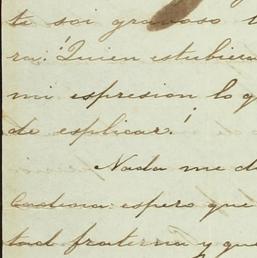 te soi gravoso
ra! Quien estubiera
mi espresion lo q
de esplicar!
Nada me d
Cadena: espero que
tad fraterna y que